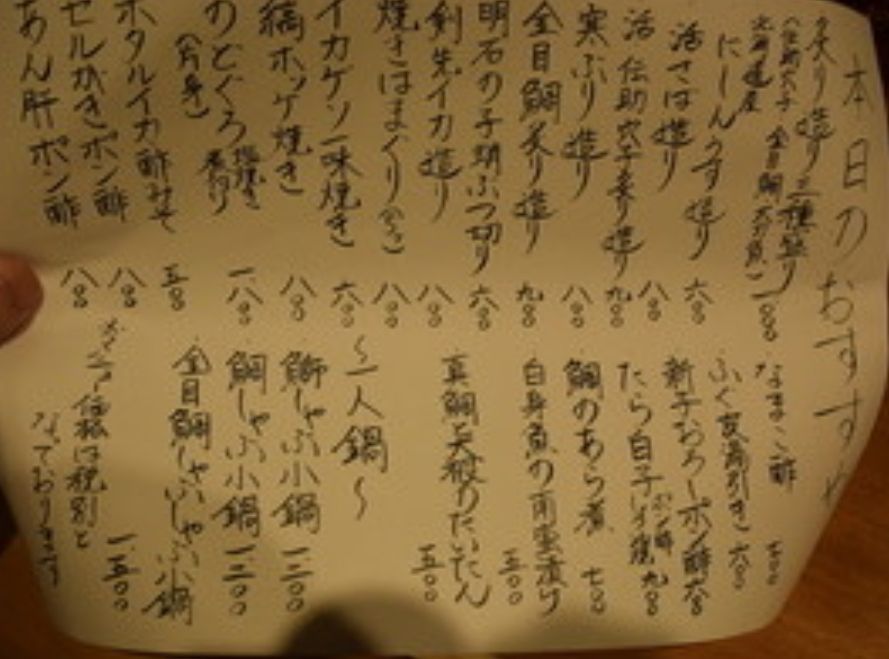 本日のおすすめ
炙り造り三種盛り
(伝助穴子 金目鯛 太刀魚)
北海道産
にしんうす造り 六〇〇
活さば造り 八〇〇
活伝助穴子炙り造り 九〇〇
寒ぶり造り 八〇〇
金目鯛炙り造り 九〇〇
明石の子期ぶつ切り 六〇〇
剣先イカ造り 八〇〇
焼きはまぐり 八〇〇
イカゲソ一味焼き 六〇〇
縞ホッケ焼き 八〇〇
のどぐろ 塩焼き 煮付け 一八〇〇
(片身)
ホタルイカ酢みそ 五〇〇
セルがきポン酢 八〇〇
あん肝ポン酢 八〇〇
なまこ酢 五〇〇
ふぐ皮湯引き 六〇〇
新子おろしポン酢 六〇〇
たら白子 ポン酢 九〇〇
鯛のあら煮 七〇〇
白身魚の南蛮漬け 五〇〇
真鯛と大根のたいたん 五〇〇
〜一人鍋〜
鰤しゃぶ小鍋 一三〇〇
鯛しゃぶ小鍋 一三〇〇
金目鯛しゃぶしゃぶ小鍋 一五〇〇
メニュー価格は税別と
なっております